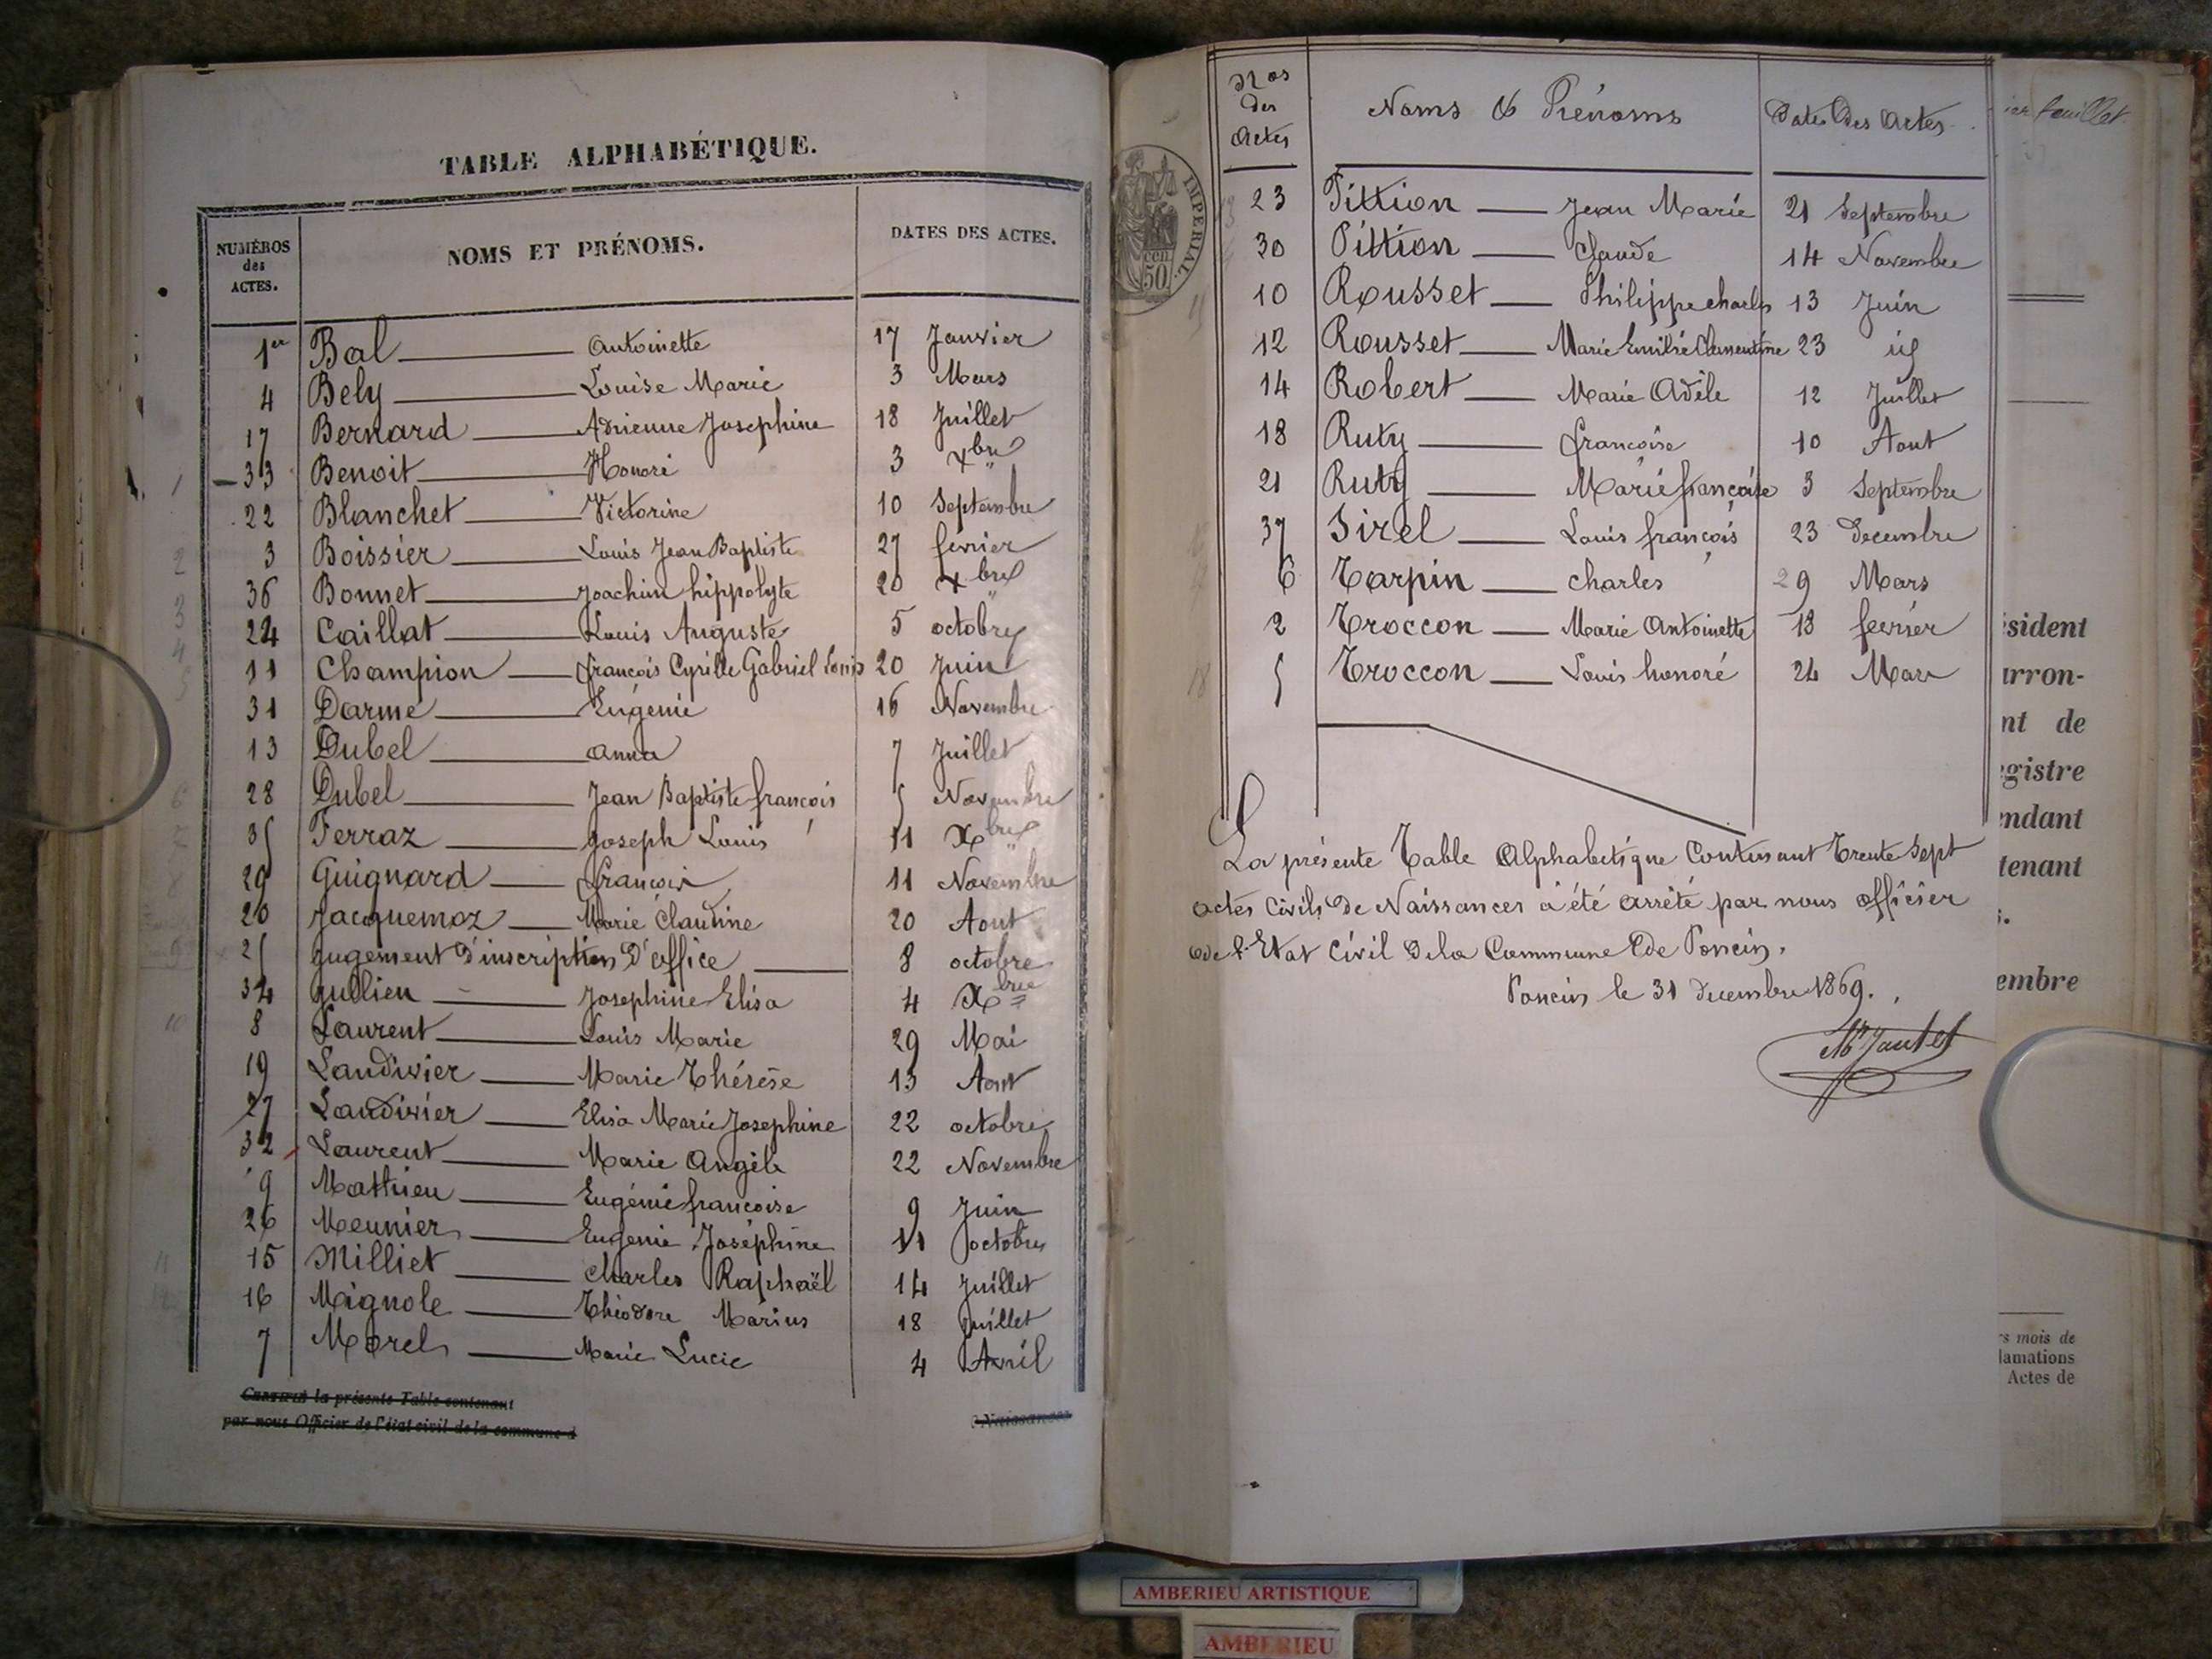 TABLE ALPHABÉTIQUE.
NUMÉROS des ACTES. NOMS ET PRÉNOMS. DATES DES ACTES.
1er Bal Antoinette 17 Janvier
4 Bely Louise Marie 3 Mars
17 Bernard Adrienne Josephine 18 Juillet
33 Benoit Honoré 3 Xbre
22 Blanchet Victorine 10 Septembre
3 Boissier Louis Jean Baptiste 27 février
36 Bonnet Joachim hippolyte 20 Xbre
24 Caillat Louis Auguste 5 octobre
11 Champion françois Cyrille Gabriel Louis 20 Juin
31 Darme Eugenie 16 Novembre
13 Dubel anna 7 Juillet
28 Dubel Jean Baptiste françois 5 Novembre
35 Ferraz Joseph Louis 11 Xbre
29 Guignard françois 11 Novembre
20 Jacquemoz Marie Claudine 20 Aout
25 Jugement d'inscription d'office 8 octobre
34 Jullien Josephine Elisa 4 Xbre
8 Laurent Louis Marie 29 Mai
19 Landivier Marie Thérèse 13 Aout
27 Landivier Elisa Marie Josephine 22 octobre
32 Laurent Marie Angèle 22 Novembre
9 Mathieu Eugénie françoise 9 Juin
26 Meunier Eugenie Joséphine 11 octobre
15 Milliet Charles Raphaël 14 Juillet
16 Mignole Théodore Marius 18 Juillet
7 Morel Marie Lucie 4 Avril
CERTIFIÉ la présente Table contenant Naissances
par nous Officier de l'état civil de la commune d
IMPERIAL.
50 cen
Nos des Actes Noms & Prénoms Dates des Actes
23 Pittion Jean Marie 21 Septembre
30 Pittion Claude 14 Novembre
10 Rousset Philippe charles 13 Juin
12 Rousset Marie Emilie Clementine 23 id
14 Robert Marie Adèle 12 Juillet
18 Ruty françoise 10 Aout
21 Ruty Marie françoise 3 Septembre
37 Sirel Louis françois 23 Decembre
6 Tarpin charles 29 Mars
2 Troccon Marie Antoinette 18 fevrier
5 Troccon Louis honoré 24 Mars
La présente Table Alphabetique Contenant Trente Sept
actes Civils de Naissances a été arrêté par nous officier
de l'Etat Civil de la Commune de Poncin.
Poncin le 31 decembre 1869.
ier feuillet
sident
arron-
nt de
egistre
endant
tenant
s.
embre
s mois de
lamations
Actes de
AMBERIEU ARTISTIQUE
AMBERIEU